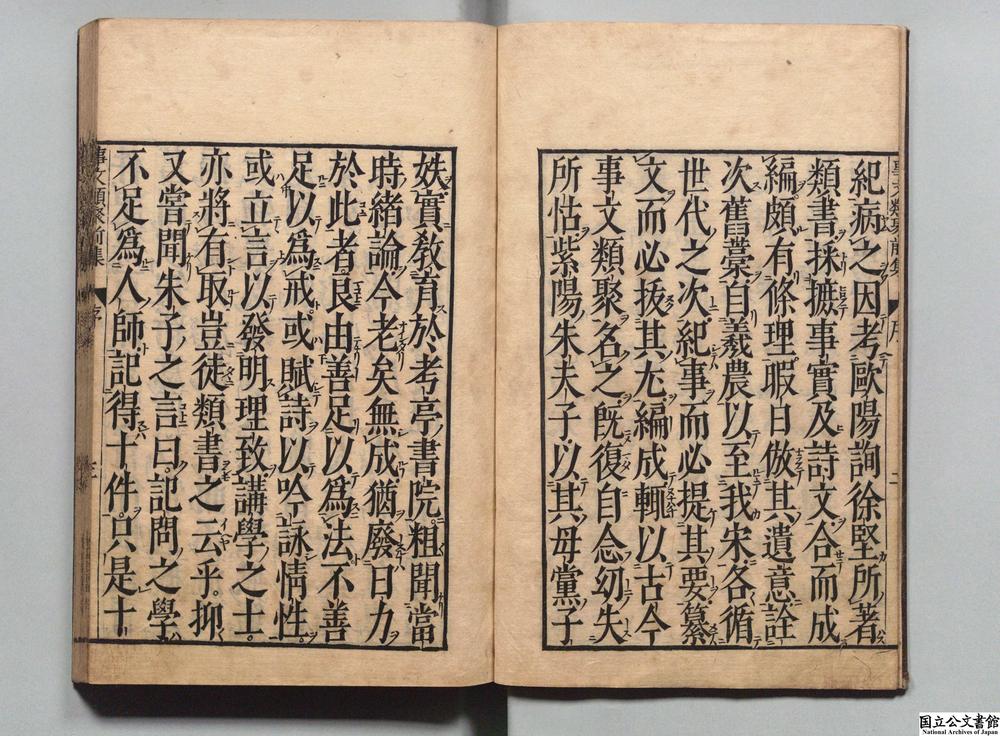 紀病之因考歐陽詢徐堅所著
類書採摭事實及詩文合而成
編頗有條理暇日倣其遺意詮
次舊藁自羲農以至我宋各循
世代之次紀事而必提其要纂
文而必拔其尤編成輒以古今
事文類聚名之旣復自念幼失
所怙紫陽朱夫子以其母黨子
姪實敎育於考亭書院粗聞當
時緒論今老矣無成猶廢日力
於此者良由善足以爲法不善
足以爲戒或賦詩以吟詠情性
或立言以發明理致講學之士
亦將有取豈徒類書之云乎抑
又嘗聞朱子之言曰記問之學
不足爲人師記得十件只是十
事文類聚前集
序
国立公文書館
National Archives of Japan